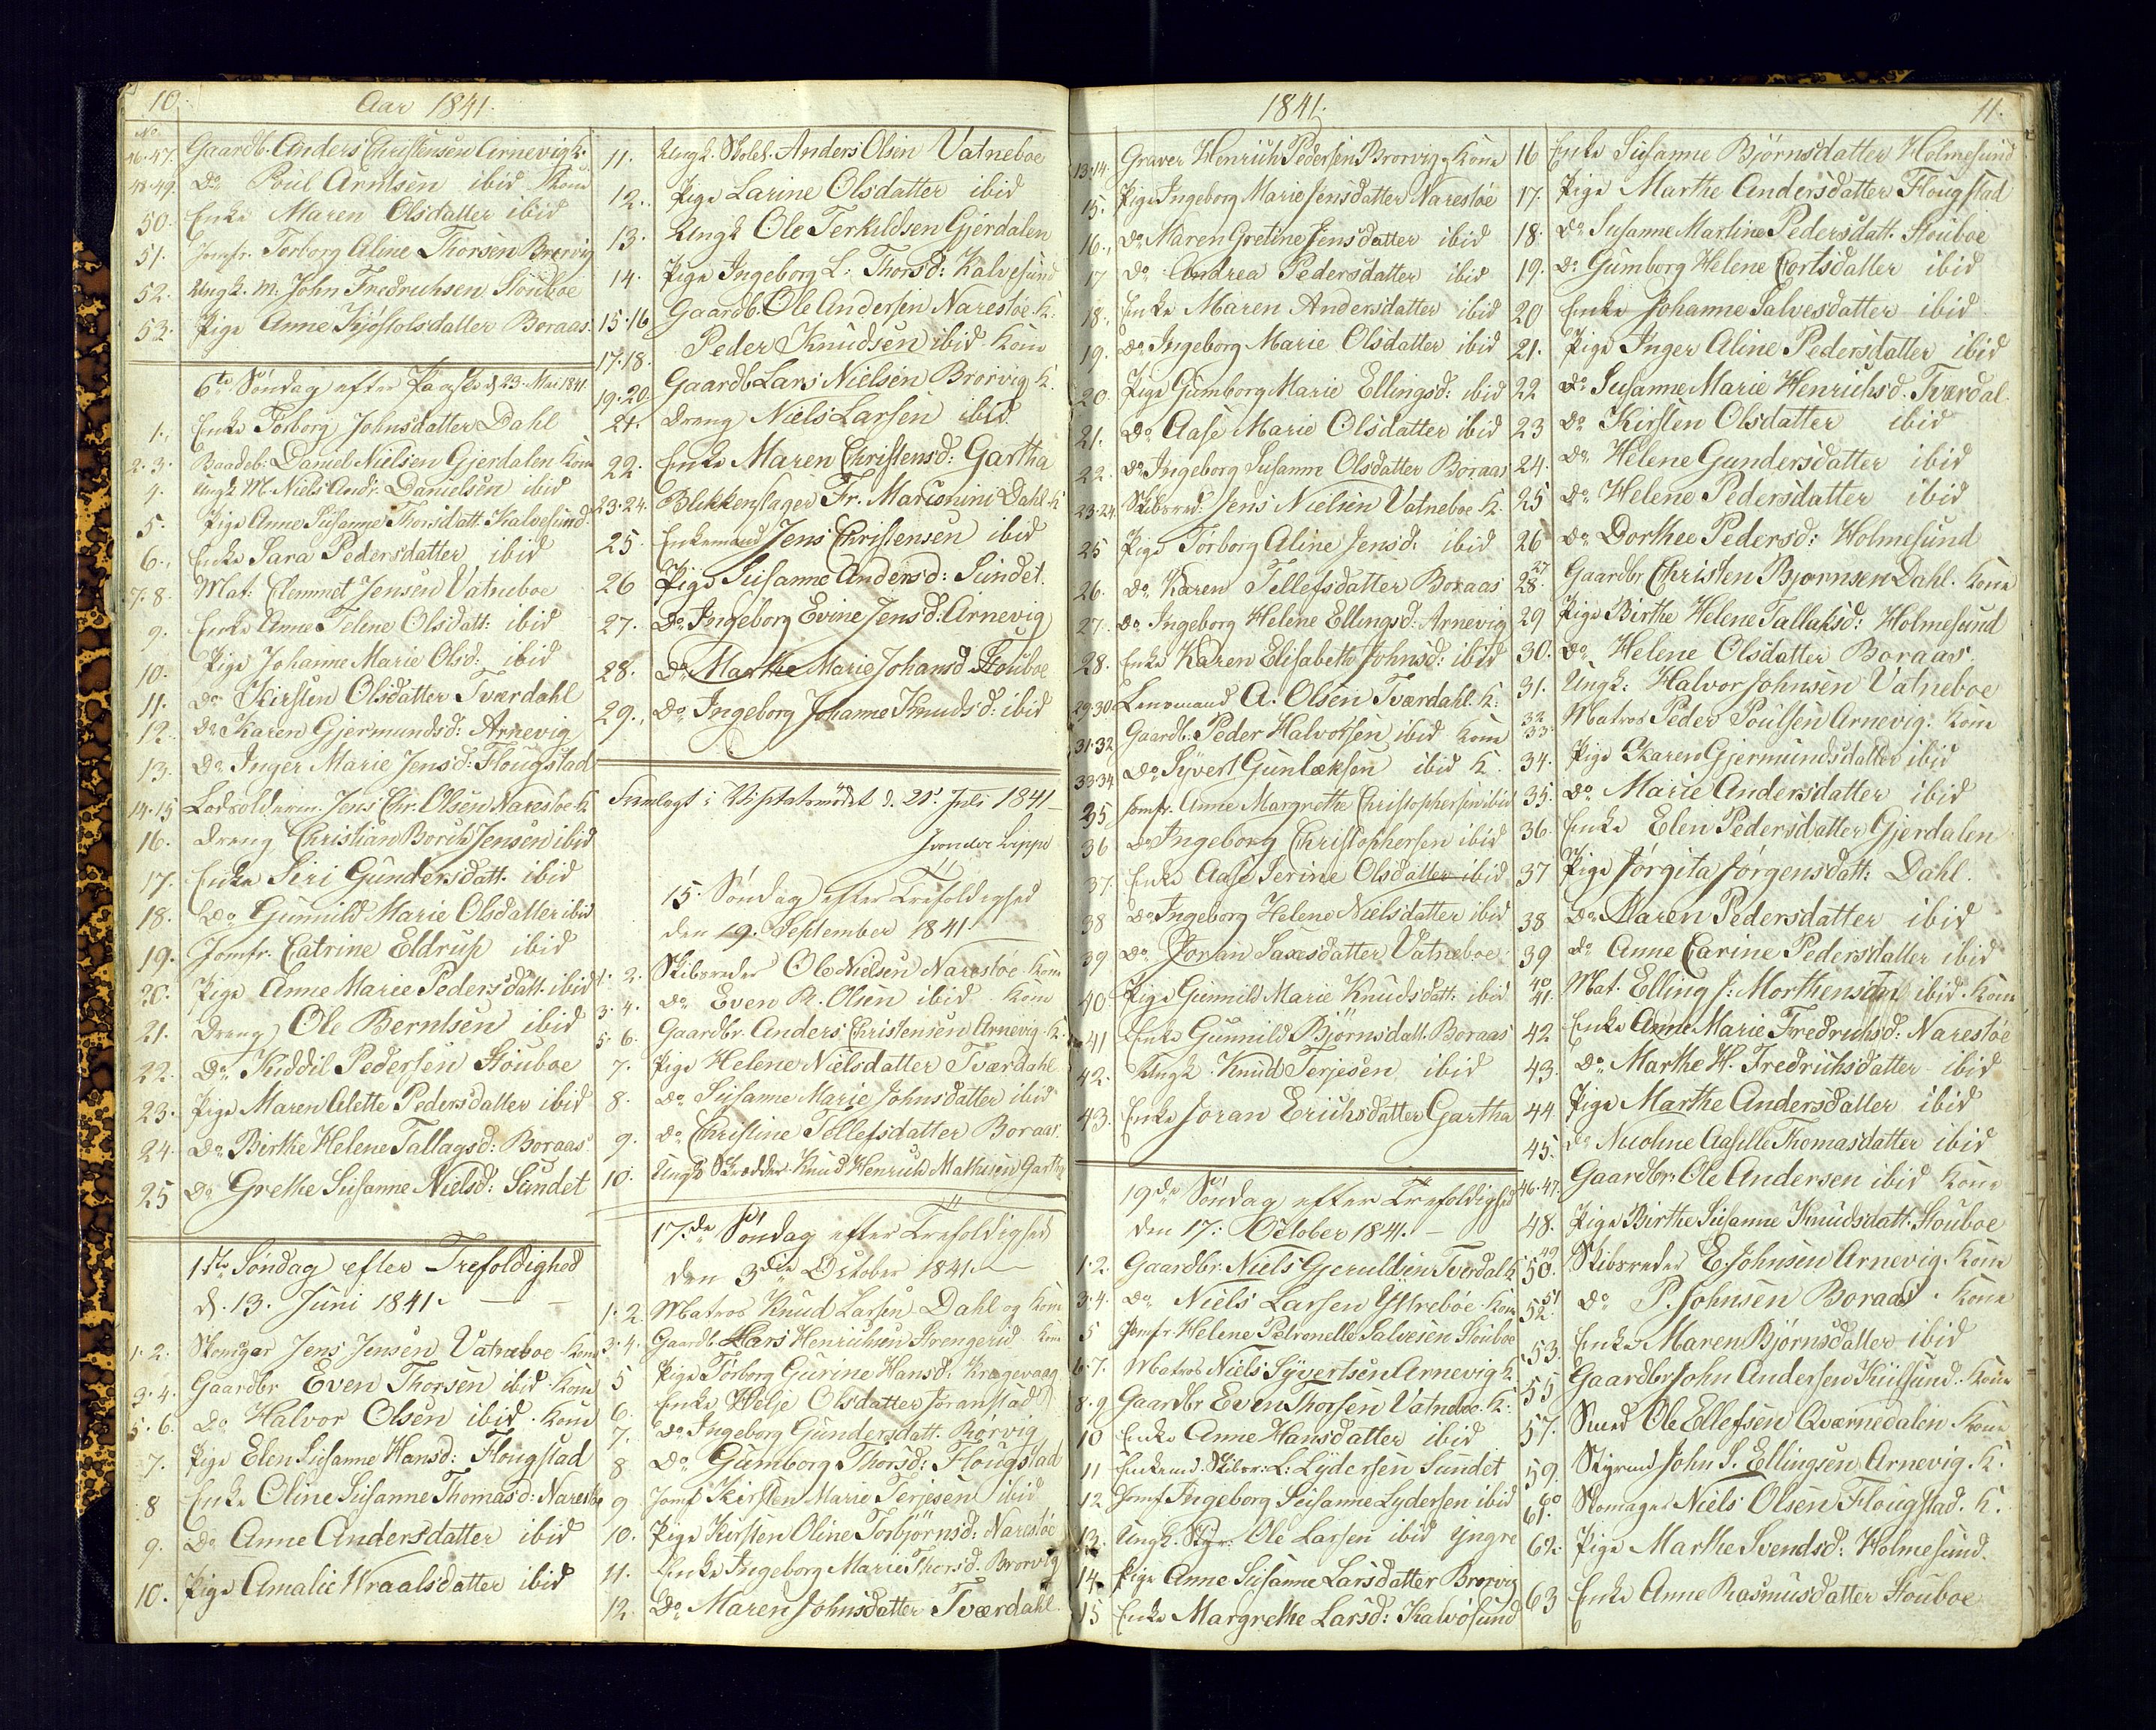 10. Aar 1841.
No
46.47. Gaardb. Anders Christensen Arnevig K.
48.49. Do Poul Arntsen ibid Kone
50. Enke Maren Olsdatter ibid
51. Jomfr. Torborg Aline Thorsen Brervig
52. Ungk. m. John Fredrichsen Stouboe
53. Pige Anne Kjøstolsdatter Boraas.
6te Søndag efter Paaske d. 23. Mai 1841.
1. Enke Torborg Johnsdatter Dahl
2.3. Baadsb: Daniel Nielsen Gjerdalen Kone
4. Ungk M. Niels Andr. Danielsen ibid
5. Pige Anne Susanne Thorsdatt. Kalvesund.
6. Enke Sara Pedersdatter ibid
7.8. Mat: Clemmet Jensen Vatneboe
9. Enke Anne Telene Olsdatt: ibid
10. Pige Johanne Marie Olsd: ibid
11. Do Kirsten Olsdatter Tværdahl
12. Do Karen Gjermundsd: Arnevig
13. Do Inger Marie Jensd: Flougstad
14.15 Lodsolderm. Jens Chr. Olsen Narestøe K
16. Dreng Christian Borch Jensen ibid
17. Enke Siri Gundersdatt. ibid
18. Do Gunnild Marie Olsdatter ibid
19. Jomfr. Catrine Eldrup ibid
20. Pige Anne Marie Pedersdatt. ibid
21. Dreng Ole Berntsen ibid
22. Do Kiddil Pedersen Stouboe
23. Pige Maren Alette Pedersdatter ibid
24. Do Birthe Helene Tallagsd: Boraas
25 Do Grethe Susanne Nielsd: Sundet
1ste Søndag efter Trefoldighed
d. 13. Juni 1841.
1.2. Skomager Jens Jensen Vatneboe Kone
3.4. Gaardbr Even Thorsen ibid Kone
5.6. Do Halvor Olsen ibid. Kone
7. Pige Elen Susanne Hansd: Flougstad
8 Enke Oline Susanne Thomasd: Narestøe
9. Do Anne Andersdatter ibid
10. Pige Amalie Wraalsdatter ibid
11. Ungk. Skolel. Anders Olsen Vatneboe
12. Pige Larine Olsdatter ibid
13. Ungk Ole Terkildsen Gjerdalen
14. Pige Ingeborg L: Thorsd: Kalvesund
15.16 Gaardb. Ole Andersen Narestøe K.
17.18. Peder Knudsen ibid Kone
19.20 Gaardb Lars Nielsen Brørvig K.
21. Dreng Niels Larsen ibid
22. Enke Maren Christensd: Gartha
23.24. Blikkenslager Fr. Marconini Dahl K
25. Enkemand Jens Christensen ibid
26 Pige Susanne Andersd: Sundet.
27. Do Ingeborg Evine Jensd: Arnevig
28. Do Marthe Marie Johansd Stouboe
29. Do Ingeborg Johanne Knudsd: ibid
Fremlagt i Visitatsmødet d. 21. Juli 1841
J von der Lippe
15. Søndag efter Trefoldighed
den 19. September 1841.
1.2. Skibsreder Ole Nielsen Narestøe Kone
3.4. Do Even R. Olsen ibid Kone
5.6. Gaardbr. Anders Christensen Arnevig K.
7. Pige Helene Nielsdatter Tværdahl
8. Do Susanne Marie Johnsdatter ibid
9. Do Christine Tellefsdatter Boraas.
10. Ungk Skrædder Knud Henrich Mathisen Gartha
17de Søndag efter Trefoldighed
den 3die October 1841.
1.2. Matros Knud Larsen Dahl og Kone
3.4. Gaardb Lars Henrichsen Strengerid Kone
5 Pige Torborg Gurine Hansd: Kragevaag
6. Enke Helje Olsdatter Joranstad
7. Do Ingeborg Gundersdatt. Rørvig
8 Do Gumborg Thorsd: Flougstad
9 Jomf Kirsten Marie Terjesen ibid
10. Pige Kirsten Oline Torbjørnsd: Narestøe
11. Enke Ingeborg Marie Thorsd. Brorvig
12. Do Maren Johnsdatter Tværdahl.
1841. 11.
13.14. Graver Henrich Pedersen Brorvig Kone
15. Pige Ingeborg Marie Jensdatter Narestøe
16. Do Maren Gretine Jensdatter ibid
17 Do Andrea Pedersdatter ibid
18. Enke Maren Andersdatter ibid
19. Do Ingeborg Marie Olsdatter ibid
20. Pige Gumborg Marie Ellingsd: ibid
21. Do Aase Marie Olsdatter ibid
22. Do Ingeborg Susanne Olsdatter Boraas
23.24. Skibsred: Jens Nielsen Vatneboe K.
25 Pige Torborg Aline Jensd: ibid
26. Do Karen Tellefsdatter Boraas
27. Do Ingeborg Helene Ellingsd: Arnevig
28. Enke Karen Elisabeth Johnsd: ibid
29.30 Lensmand A. Olsen Tværdahl. K.
31.32 Gaardb. Peder Halvorsen ibid Kone
33.34 Do Syvert Gunlæksen ibid K
35 Jomfr. Anne Margrethe Christophersen ibid
36 Do Ingeborg Christophersen ibid
37. Enke Aase Serine Olsdatter ibid
38 Do Ingeborg Helene Nielsdatter ibid
39 Do Joran Saxesdatter Vatneboe
40 Pige Gunnild Marie Knudsdatt: ibid
41 Enke Gunnild Bjørnsdatt. Boraas
42. Ungk. Knud Terjesen ibid
43. Enke Joran Erichsdatter Gartha
19de Søndag efter Trefoldighed
den 17. October 1841.
1.2. Gaardbr. Niels Gjeruldsen Tverdal K
3.4. Do Niels Larsen Ystrebøe Kone
5 Jomfr. Helene Petronelle Salvesen Stouboe
6.7. Matros Niels Syvertsen Arnevig K.
8.9 Gaardbr Even Thorsen Vatneboe K.
10 Enke Anne Hansdatter ibid
11 Enkemd. Skibsr: L: Lydersen Sundet
12 Jomf Ingeborg Susanne Lydersen ibid
13. Ungk. Styr: Ole Larsen ibid yngre
14. Pige Anne Susanne Larsdatter Brørvig
15 Enke Margrethe Larsd: Kalvøsund
16 Enke Susanne Bjørnsdatter Holmesund
17. Pige Marthe Andersdatter Flougstad
18. Do Susanne Martine Pedersdatt. Stouboe
19. Do Gumborg Helene Cortsdatter ibid
20 Enke Johanne Salvesdatter ibid
21. Pige Inger Aline Pedersdatter ibid
22 Do Susanne Marie Henrichsd. Tværdal.
23 Do Kirsten Olsdatter ibid
24. Do Helene Gundersdatter ibid
25 Do Helene Pedersdatter ibid
26 Do Dorthee Pedersd: Holmesund
27 28. Gaardbr. Christen Bjornsen Dahl. Kone
29 Pige Birthe Helene Tallaksd: Holmesund
30. Do Helene Olsdatter Boraas
31. Ungk: Halvor Johnsen Vatneboe
32 33 Matros Peder Poulsen Arnevig. Kone
34. Pige Karen Gjermundsdatter ibid
35. Do Marie Andersdatter ibid
36. Enke Elen Pedersdatter Gjerdalen
37 Pige Jørgita Jørgensdatt: Dahl.
38 Do Maren Pedersdatter ibid
39 Do Anne Carine Pedersdatter ibid
40 41. Mat. Elling J: Morthensen ibid Kone
42 Enke Anne Marie Fredrichsd: Narestøe
43. Do Marthe H. Fredrichsdatter ibid
44 Pige Marthe Andersdatter ibid
45. Do Nicoline Aasille Thomasdatter ibid
46.47. Gaardbr: Ole Andersen ibid Kone
48. Pige Birthe Susanne Knudsdatt: Stouboe
49 50. Skibsreder E. Johnsen Arnevig. Kone
51 52. Do P. Johnsen Boraas Kone
53. Enke Maren Bjørnsdatter ibid
55 Gaardbr John Andersen Kiilsund. Kone
57. Smed Ole Ellefsen Qværnedalen Kone
59. Styrmd John S. Ellingsen Arnevig K.
60 61. Skomager Niels Olsen Flougstad. K.
62. Pige Marthe Svendsd: Holmesund.
63 Enke Anne Rasmusdatter Stouboe